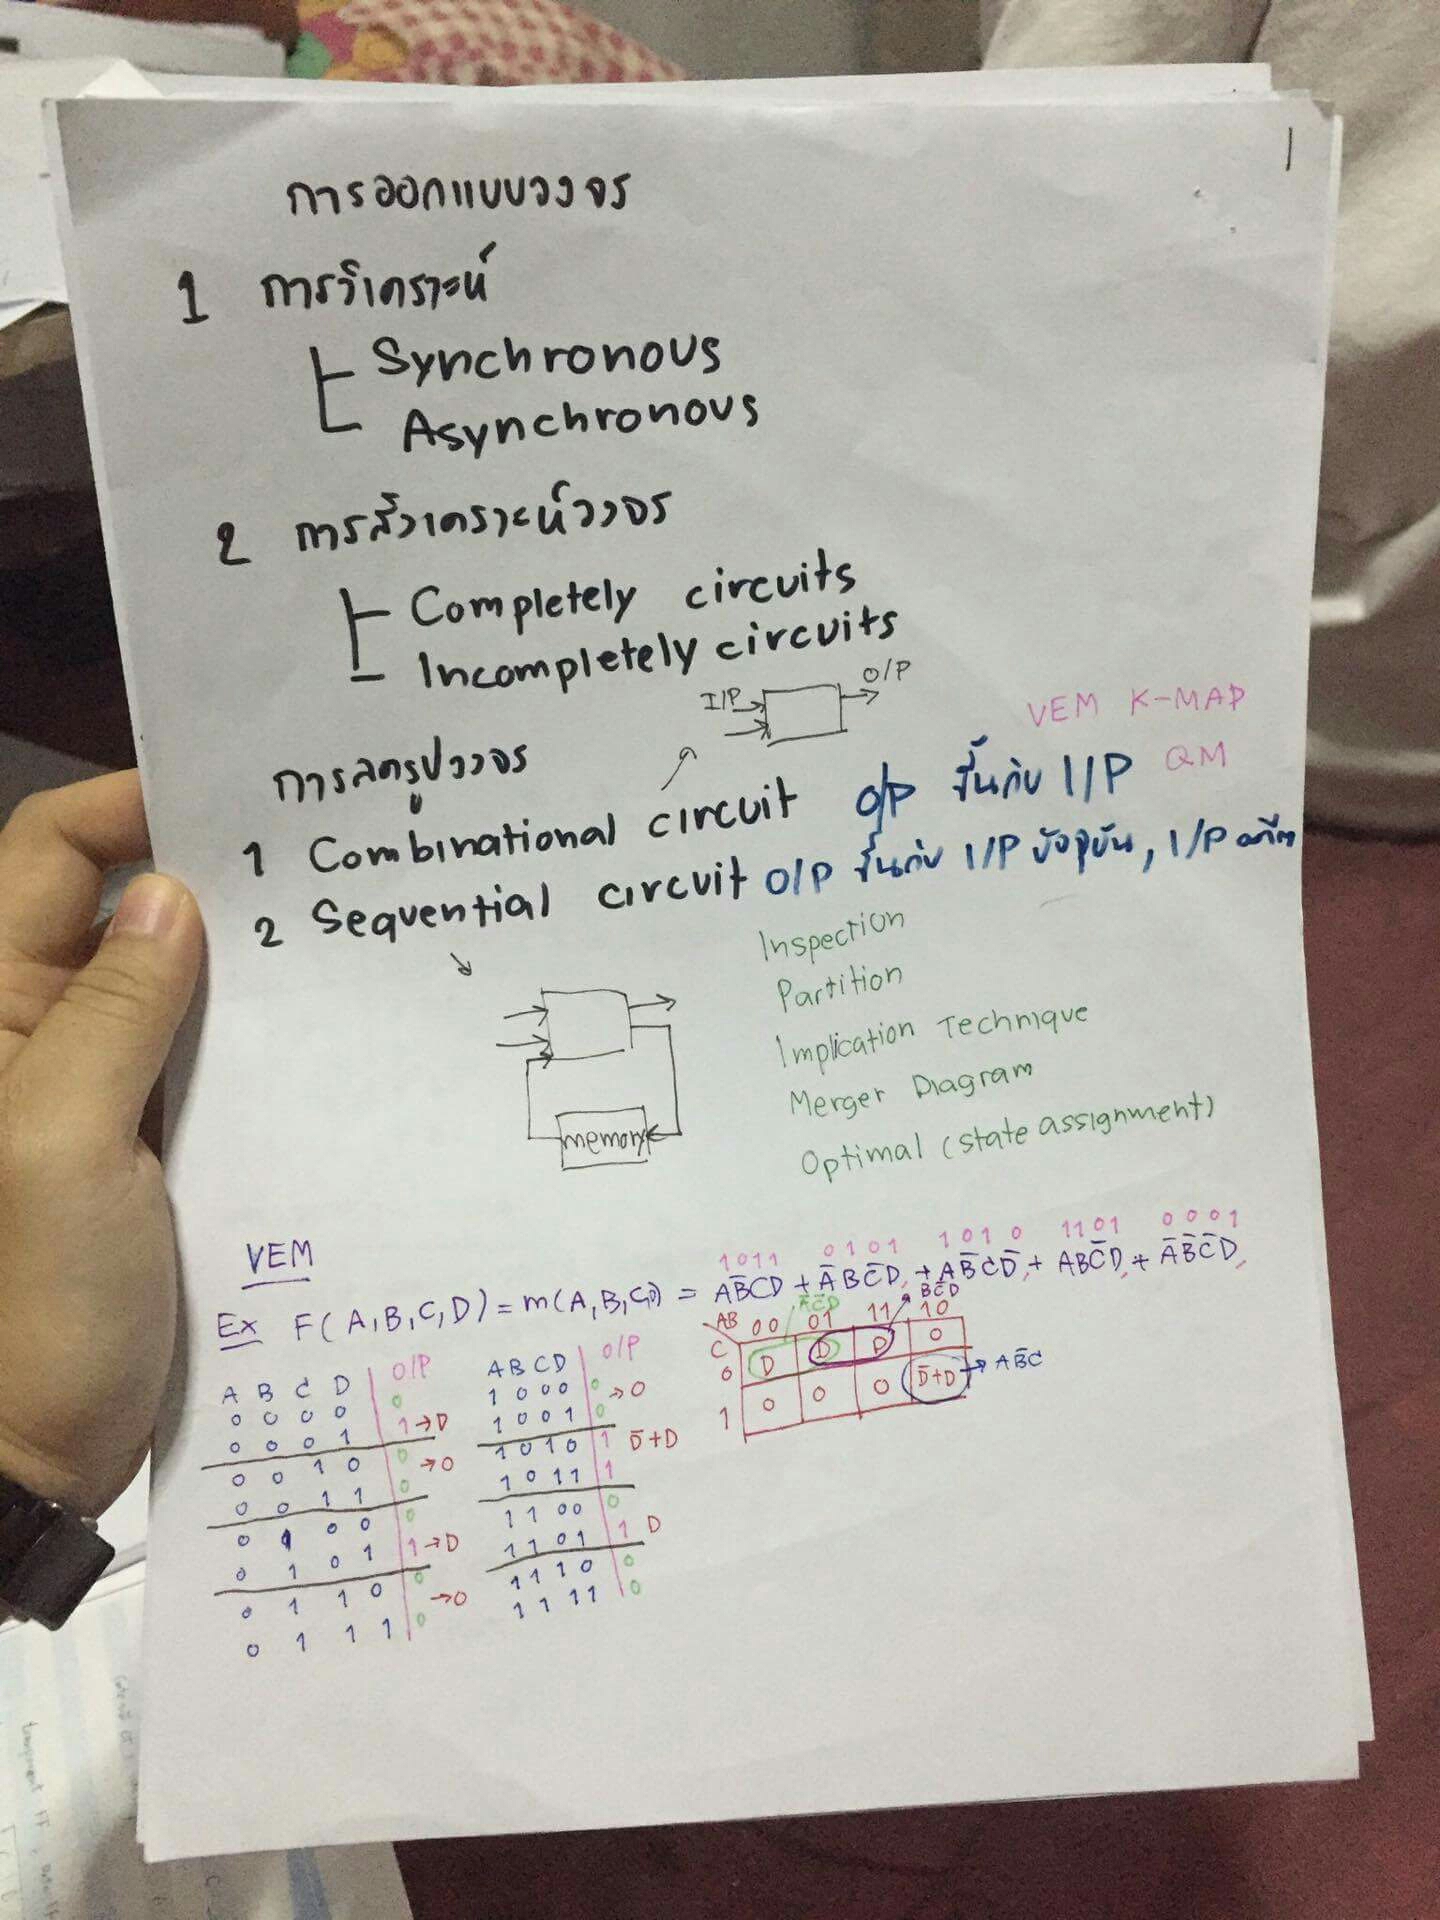 1
การออกแบบวงจร
1 การวิเคราะห์
Synchronous
Asynchronous
2 การสังเคราะห์วงจร
Completely circuits
Incompletely circuits
I/P O/P
VEM K-MAP
QM
การลดรูปวงจร
1 Combinational circuit O/P ขึ้นกับ I/P
2 Sequential circuit O/P ขึ้นกับ I/P ปัจจุบัน, I/P อดีต
Inspection
Partition
Implication Technique
Merger Diagram
Optimal (state assignment)
memory
VEM
1011 0101 1010 1101 0001
Ex F(A,B,C,D) = m(A,B,C,D) = AB̄CD + ĀBC̄D + AB̄CD̄ + ABC̄D + ĀB̄C̄D
ĀC̄D BC̄D
AB 00 01 11 10
C
0 D D D 0
1 0 0 0 D̄+D → AB̄C
A B C D O/P
0 0 0 0 0
0 0 0 1 1 → D
0 0 1 0 0 → 0
0 0 1 1 0
0 1 0 0 0
0 1 0 1 1 → D
0 1 1 0 0 → 0
0 1 1 1 0
A B C D O/P
1 0 0 0 0 → 0
1 0 0 1 0
1 0 1 0 1 D̄+D
1 0 1 1 1
1 1 0 0 0
1 1 0 1 1 D
1 1 1 0 0
1 1 1 1 0